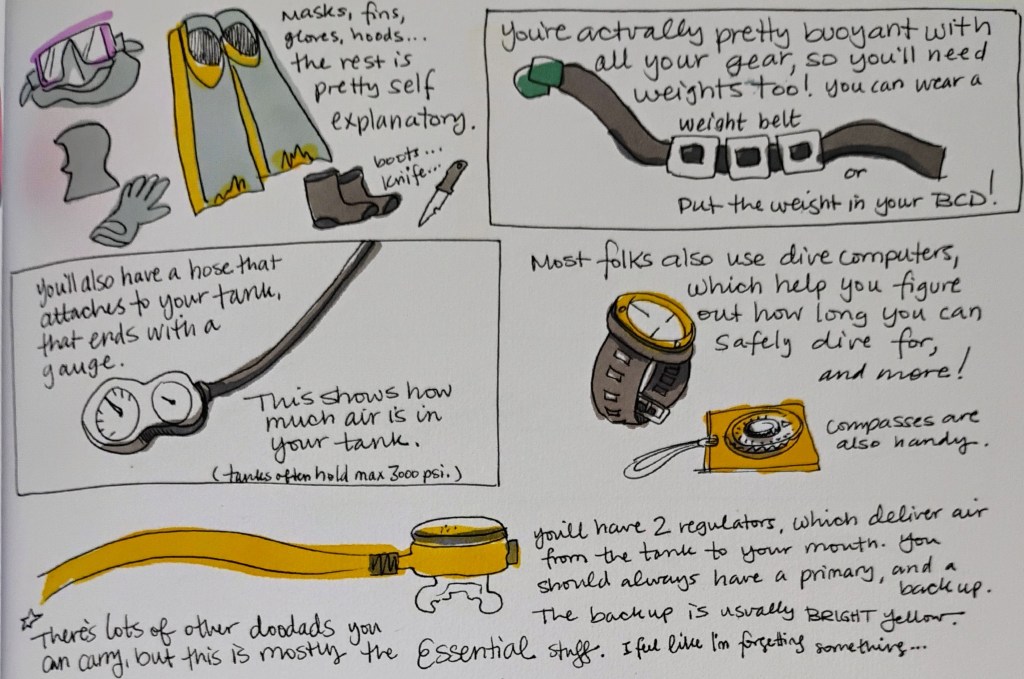 Masks, fins,
gloves, hoods...
the rest is
pretty self
explanatory.
boots...
knife...
You're actually pretty buoyant with
all your gear, so you'll need
weights too! You can wear a
weight belt
or
Put the weight in your BCD!
You'll also have a hose that
attaches to your tank,
that ends with a
gauge.
This shows how
much air is in
your tank.
(tanks often hold max 3000 psi.)
Most folks also use dive computers,
which help you figure
out how long you can
safely dive for,
and more!
compasses are
also handy.
You'll have 2 regulators, which deliver air
from the tank to your mouth. You
should always have a primary, and a
backup.
The backup is usually BRIGHT Yellow.
There's lots of other doodads you
can carry, but this is mostly the Essential stuff. I feel like I'm forgetting something...